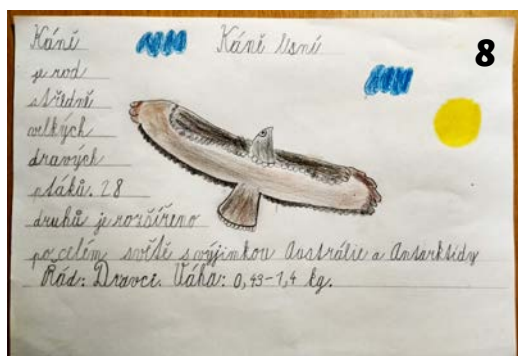 Káně
Káně lesní
8
je rod
středně
velkých
dravých
ptáků. 28
druhů je rozšířeno
po celém světě s výjimkou Austrálie a Antarktidy
Řád: Dravci. Váha: 0,43-1,4 kg.